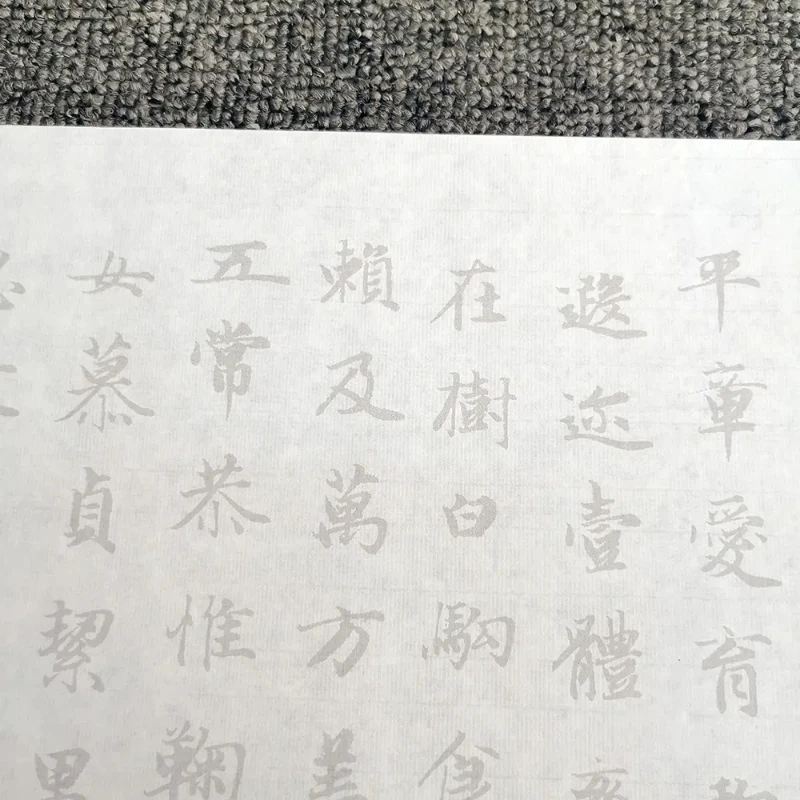 平章愛育
遐迩壹體
在樹白駒食
賴及萬方蓋
五常恭惟鞠
女慕貞絜男